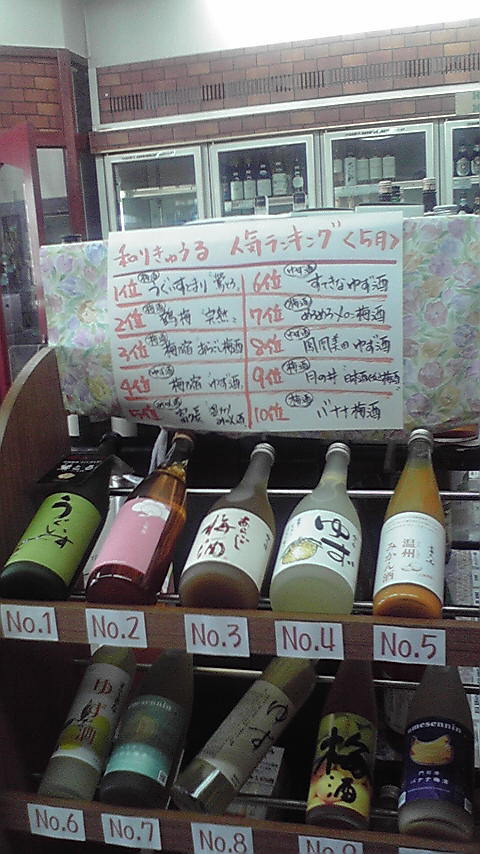 和りきゅうる 人気ランキング<5月>
1位 梅酒 うぐいすとまり
2位 梅酒 鶴梅 完熟
3位 梅酒 梅乃宿 あらごし梅酒
4位 ゆず酒 梅乃宿 ゆず酒
5位
6位 ゆず酒 すてきなゆず酒
7位 梅酒 めろめろメロン梅酒
8位 ゆず酒 鳳凰美田 ゆず酒
9位 梅酒 月の井 日本酒仕込梅酒
10位 梅酒 バナナ梅酒
うぐいす
あらごし
梅酒
ゆず
温州
みかん酒
No.1
No.2
No.3
No.4
No.5
ゆず酒
umesennin
ゆず
梅酒
umesennin
バナナ梅酒
No.6
No.7
No.8
No.9
No.10